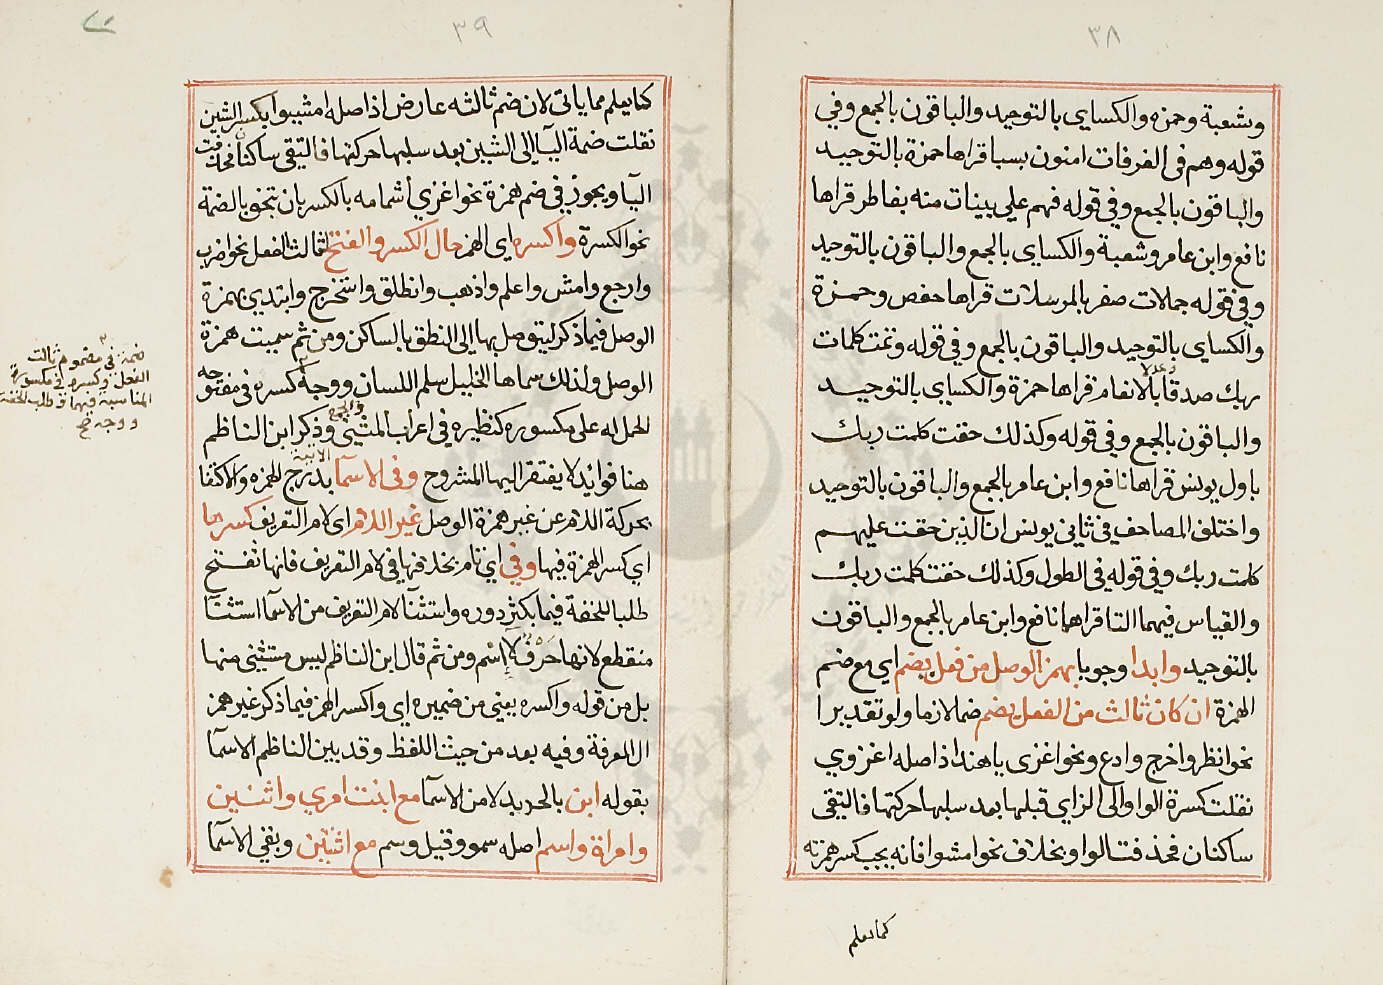 ٣٨
وشعبة وحمزه والكساي بالتوحيد والباقون بالجمع وفي
قوله وهم في الغرفات امنون بسبا قراها حمزة بالتوحيد
والباقون بالجمع وفي قوله فهم علي بينات منه بفاطر قراها
نافع وابن عامر وشعبة والكساي بالجمع والباقون بالتوحيد
وفي قوله جمالات صفر بالمرسلات قراها حفص وحمزة
والكساي بالتوحيد والباقون بالجمع وفي قوله وتمت كلمات
ربك صدقا وعدلا بالانعام قراها حمزة والكساي بالتوحيد
والباقون بالجمع وفي قوله وكذلك حقت كلمت ربك
باول يونس قراها نافع وابن عامر بالجمع والباقون بالتوحيد
واختلف المصاحف في ثاني يونس ان الذين حقت عليهم
كلمت ربك وفي قوله في الطول وكذلك حقت كلمت ربك
والقياس فيهما التا قراهما نافع وابن عامر بالجمع والباقون
بالتوحيد وابدا وجوبا بهمز الوصل من فعل بضم اي مع ضم
الهمزة ان كان ثالث من الفعل يضم ضما لازما ولو تقديرا
نحو انظر واخرج وادع ونحو اغزى ياهند اذ اصله اغزوي
نقلت كسرة الواو الى الزاي قبلها بعد سلبها حركتها فالتقى
ساكنان فحذفت الواو بخلاف نحو امشوا فانه يجب كسر همزته
كما يعلم
٣٩
كما يعلم مما ياتى لان ضم ثالثه عارض اذ اصله امشيوا بكسر الشين
نقلت ضمة اليآ إلى الشين بعد سلبها حركتها فالتقى ساكنان فحذفت
اليآ ويجوز في ضم همزة نحو اغزي أشمامه بالكسر بان تنحو بالضمة
نحو الكسرة واكسره اي الهمز حال الكسر والفتح لثالث الفعل نحو اضرب
وارجع وامش واعلم واذهب وانطلق واستخرج وابتدي بهمزة
الوصل فيما ذكر ليتوصل بها إلى النطق بالساكن ومن ثم سميت همزة
الوصل ولذلك سماها الخليل سلم اللسان ووجه كسره في مفتوحه
الحمل له على مكسوره كنظيره في اعراب المثنى والجمع وذكر ابن الناظم
هنا فوائد لا يفتقر اليها المشروح وفى الاسمآ بدرج الهمزه والاكتفا
بحركة اللام عن غير همزة الوصل غير اللام اى لام التعريف كسرها
اي كسر الهمزة فيها وفي اي تام بخلافها في لام التعريف فانها تفتح
طلبا للخفة فيما يكثر دوره واستثنآ لام التعريف من الاسمآ استثنآ
منقطع لانها حرف لا إسم ومن ثم قال ابن الناظم ليس مستثنى منها
بل من قوله واكسره يعني من ضميره اي واكسر الهمز فيما ذكر غير همز
ال المعرفة وفيه بعد من حيث اللفظ وقد بين الناظم الاسمآ
بقوله ابن بالجر بدلا من الاسمآ مع ابنت امري واثنين
وامراة واسم اصله سمو وقيل وسم مع اثنتين وبقي الاسمآ
ضمة في مضموم ثالث
الفعل وكسره في مكسوره
المناسبة فيهما وطلب الخفة
ووجه